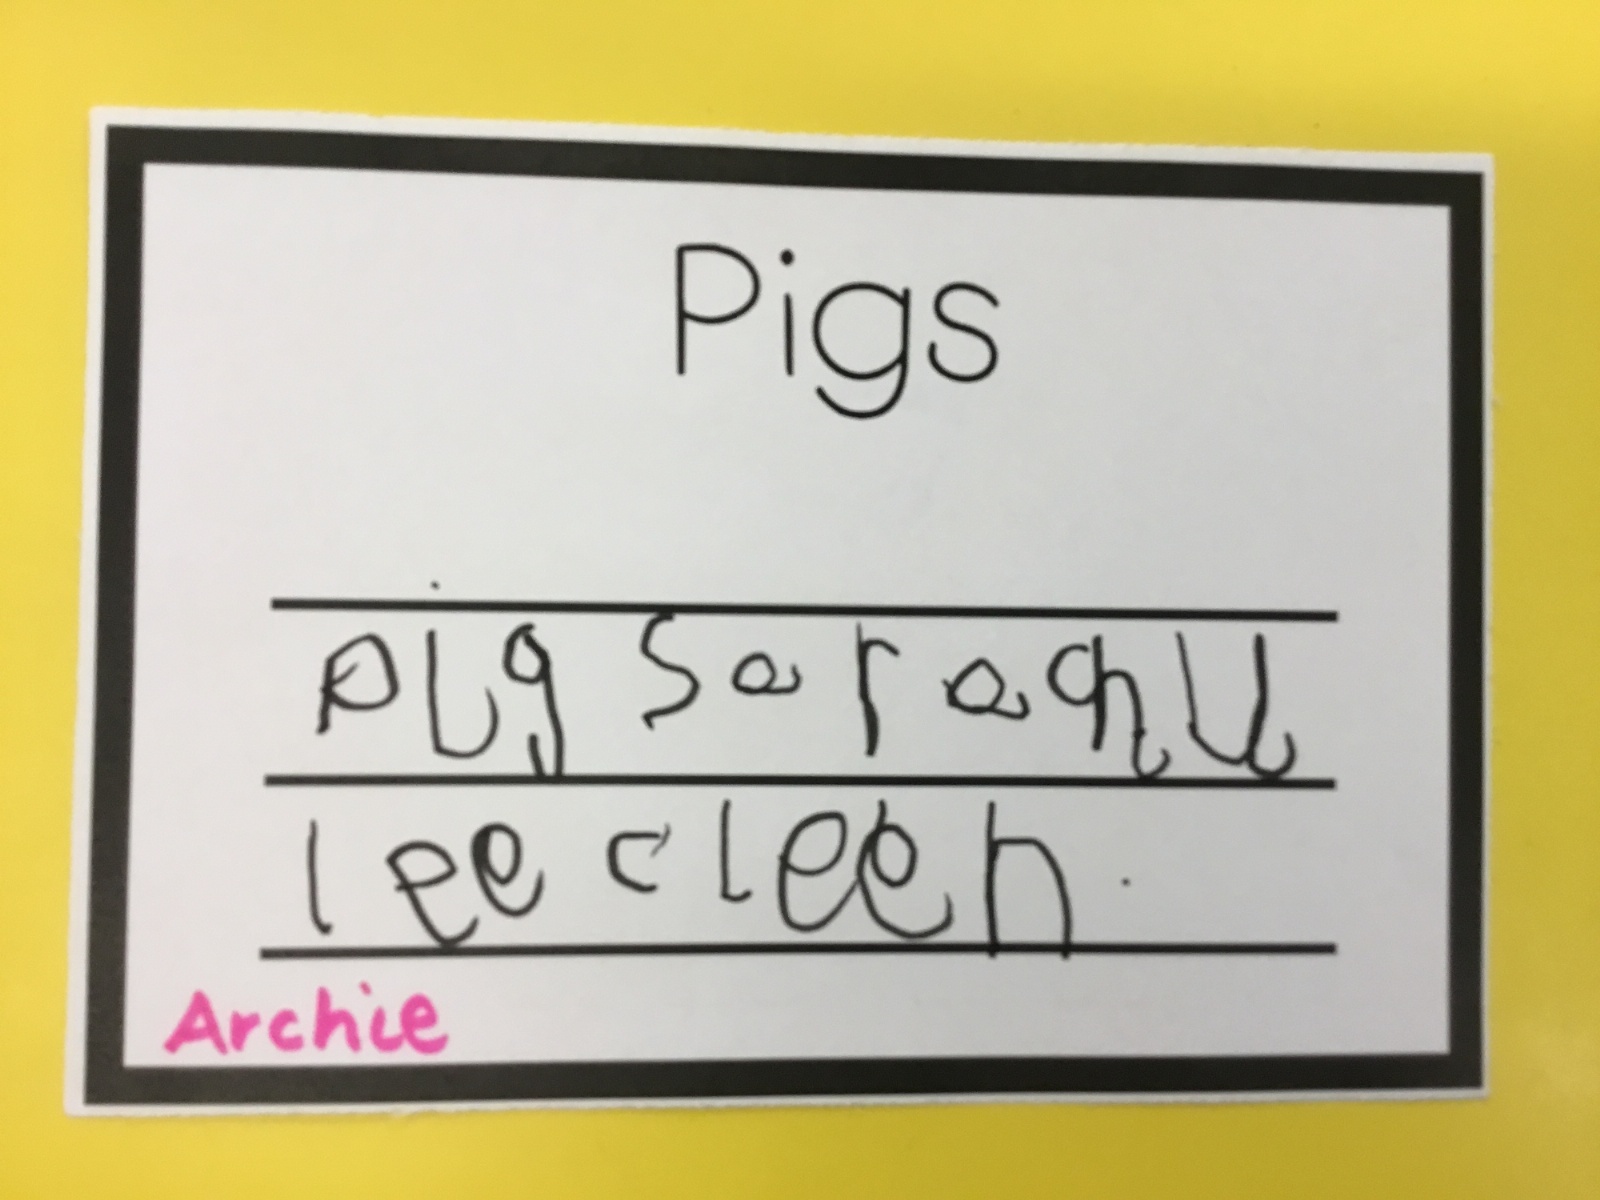 Pigs
pigs ar aqu
lee cleen.
Archie